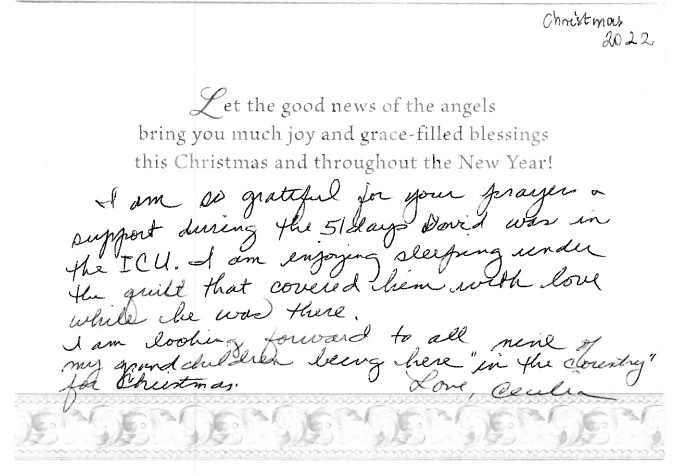 Christmas
2022
Let the good news of the angels
bring you much joy and grace-filled blessings
this Christmas and throughout the New Year!
I am so grateful for your prayers &
support during the 51 days David was in
the ICU. I am enjoying sleeping under
the quilt that covered him with love
while he was there.
I am looking forward to all nine of
my grandchildren being here "in the country"
for Christmas.
Love, Cecilia